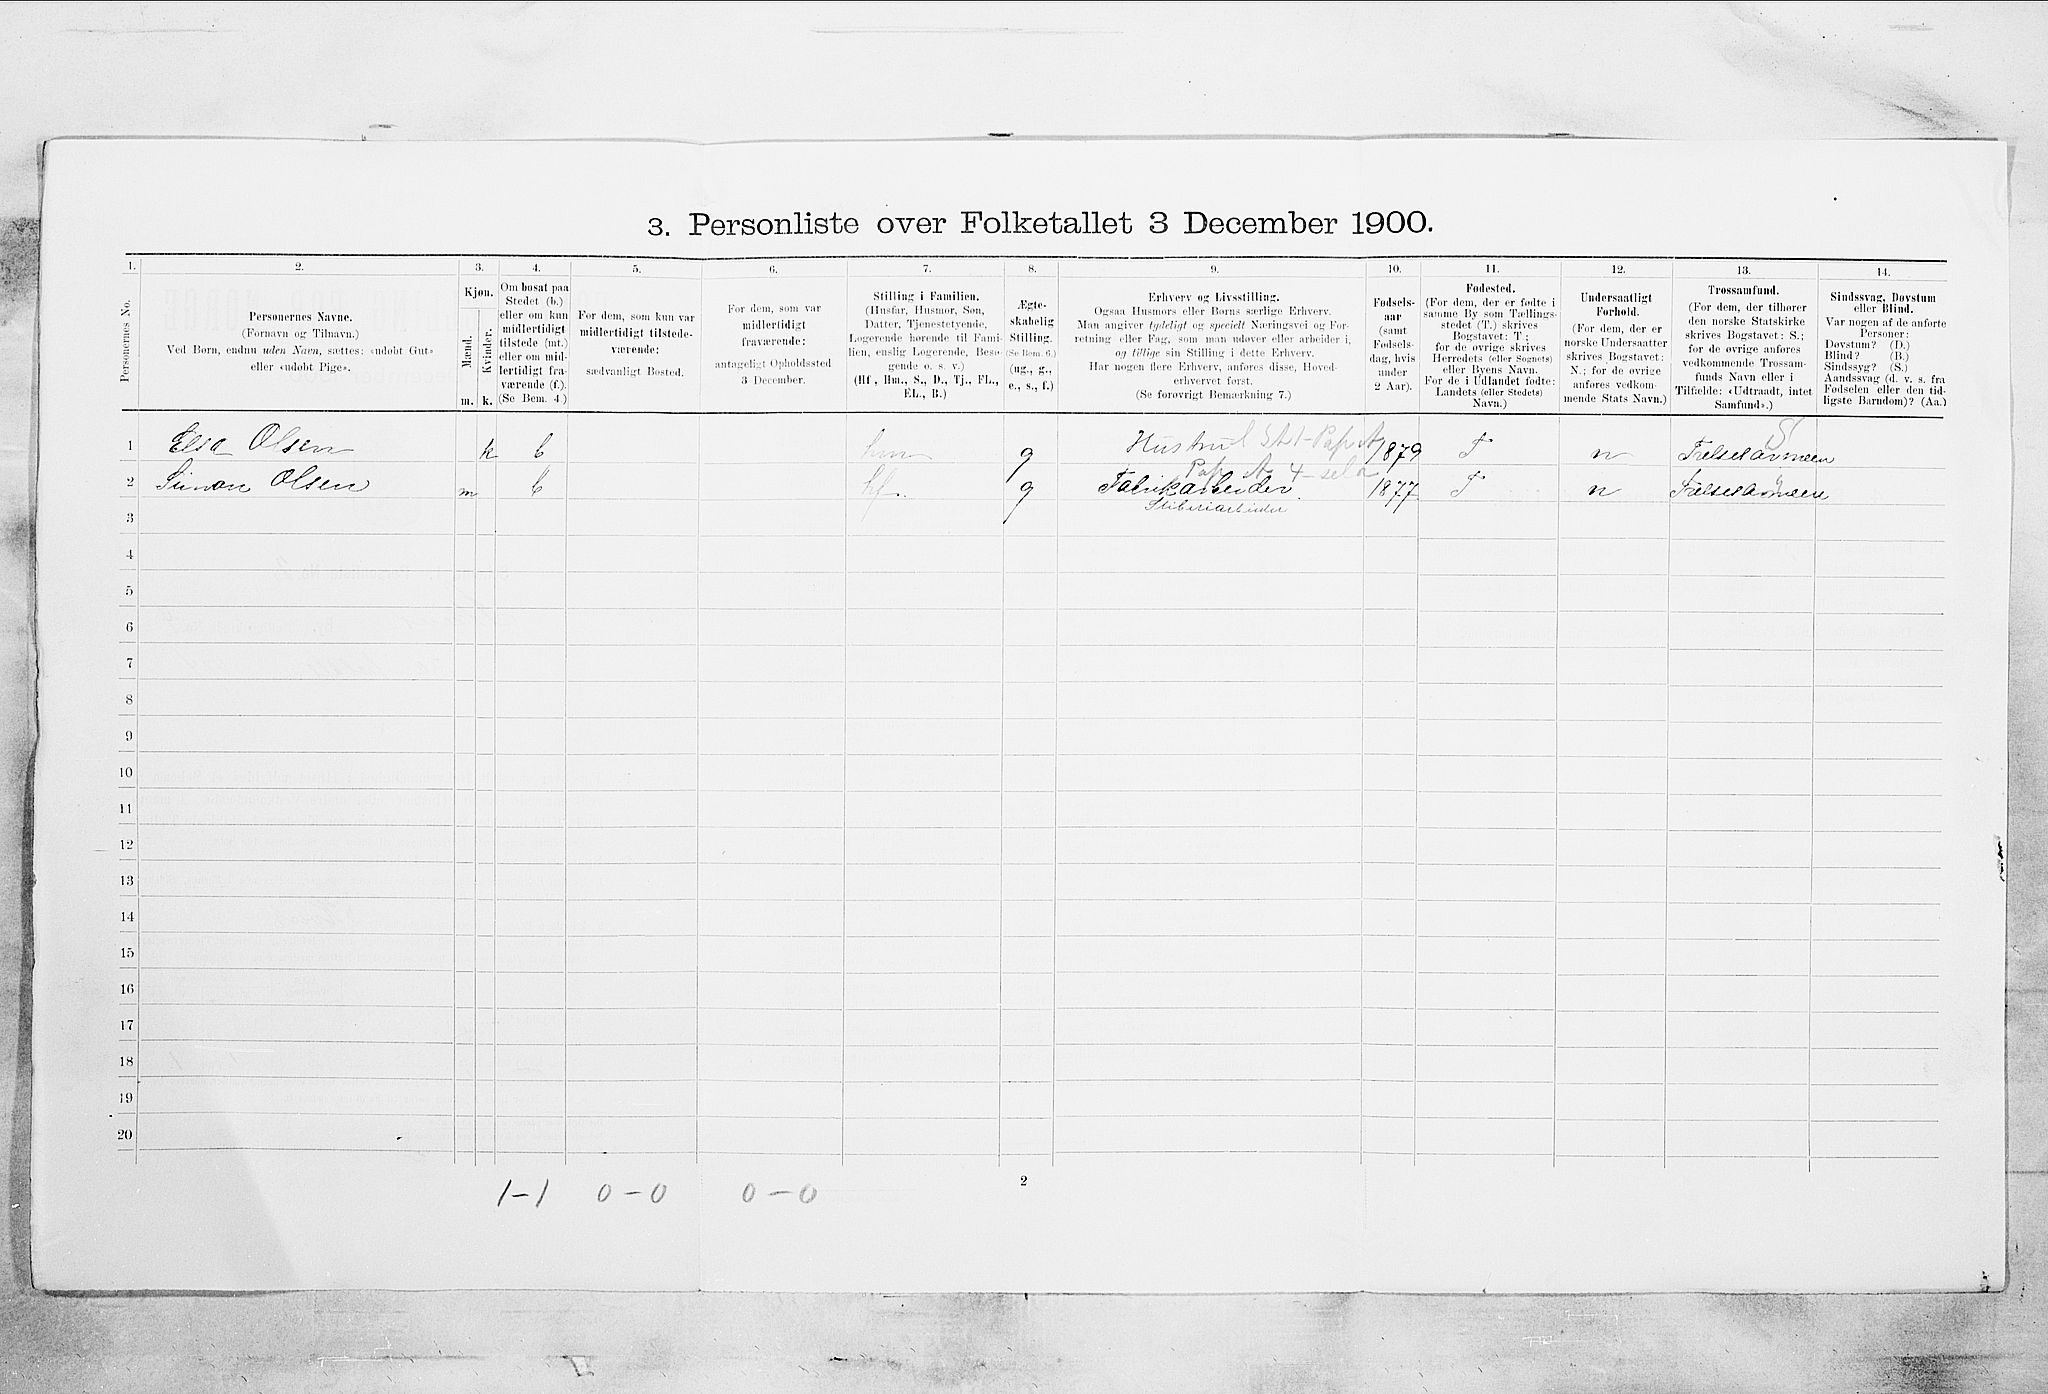 3. Personliste over Folketallet 3 December 1900.
1. 2. 3. 4. 5. 6. 7. 8. 9. 10. 11. 12. 13. 14.
Personernes No.
Personernes Navne.
(Fornavn og Tilnavn.)
Ved Børn, endnu uden Navn, sættes: «udøbt Gut»
eller «udøbt Pige».
Kjøn.
Mænd.
Kvinder.
m. k.
Om bosat paa
Stedet (b.)
eller om kun
midlertidigt
tilstede (mt.)
eller om mid-
lertidigt fra-
værende (f.).
(Se Bem. 4.)
For dem, som kun var
midlertidigt tilstede-
værende:
sædvanligt Bosted.
For dem, som var
midlertidigt
fraværende:
antageligt Opholdssted
3 December.
Stilling i Familien.
(Husfar, Husmor, Søn,
Datter, Tjenestetyende,
Logerende hørende til Fami-
lien, enslig Logerende, Besø-
gende o. s. v.)
(Hf., Hm., S., D., Tj., FL.,
EL., B.)
Ægte-
skabelig
Stilling.
(Se Bem. 6.)
(ug., g.,
e., s., f.)
Erhverv og Livsstilling.
Ogsaa Husmors eller Børns særlige Erhverv.
Man angiver tydeligt og specielt Næringsvei og For-
retning eller Fag, som man udøver eller arbeider i,
og tillige sin Stilling i dette Erhverv.
Har nogen flere Erhverv, anføres disse, Hoved-
erhvervet først.
(Se forøvrigt Bemærkning 7.)
Fødsels-
aar
(samt
Fødsels-
dag, hvis
under
2 Aar).
Fødested.
(For dem, der er fødte i
samme By som Tællings-
stedet (T.) skrives
Bogstavet: T.;
for de øvrige skrives
Herredets (eller Sognets)
eller Byens Navn.
For de i Udlandet fødte:
Landets (eller Stedets)
Navn.)
Undersaatligt
Forhold.
(For dem, der er
norske Undersaatter
skrives Bogstavet:
N.; for de øvrige
anføres vedkom-
mende Stats Navn.)
Trossamfund.
(For dem, der tilhører
den norske Statskirke
skrives Bogstavet: S.;
for de øvrige anføres
vedkommende Trossam-
funds Navn eller i
Tilfælde: «Udtraadt, intet
Samfund».)
Sindssvag, Døvstum
eller Blind.
Var nogen af de anførte
Personer:
Døvstum? (D.)
Blind? (B.)
Sindssyg? (S.)
Aandssvag (d. v. s. fra
Fødselen eller den tid-
ligste Barndom)? (Aa.)
S
1 Elsa Olsen k b hm g Hustru 1879 T n Frelsesarmeen
2 Simon Olsen m b hf. g Fabrikarbeider. 1877 T n Frelsesarmeen
3
4
5
6
7
8
9
10
11
12
13
14
15
16
17
18
19
20
1-1 0-0 0-0
2